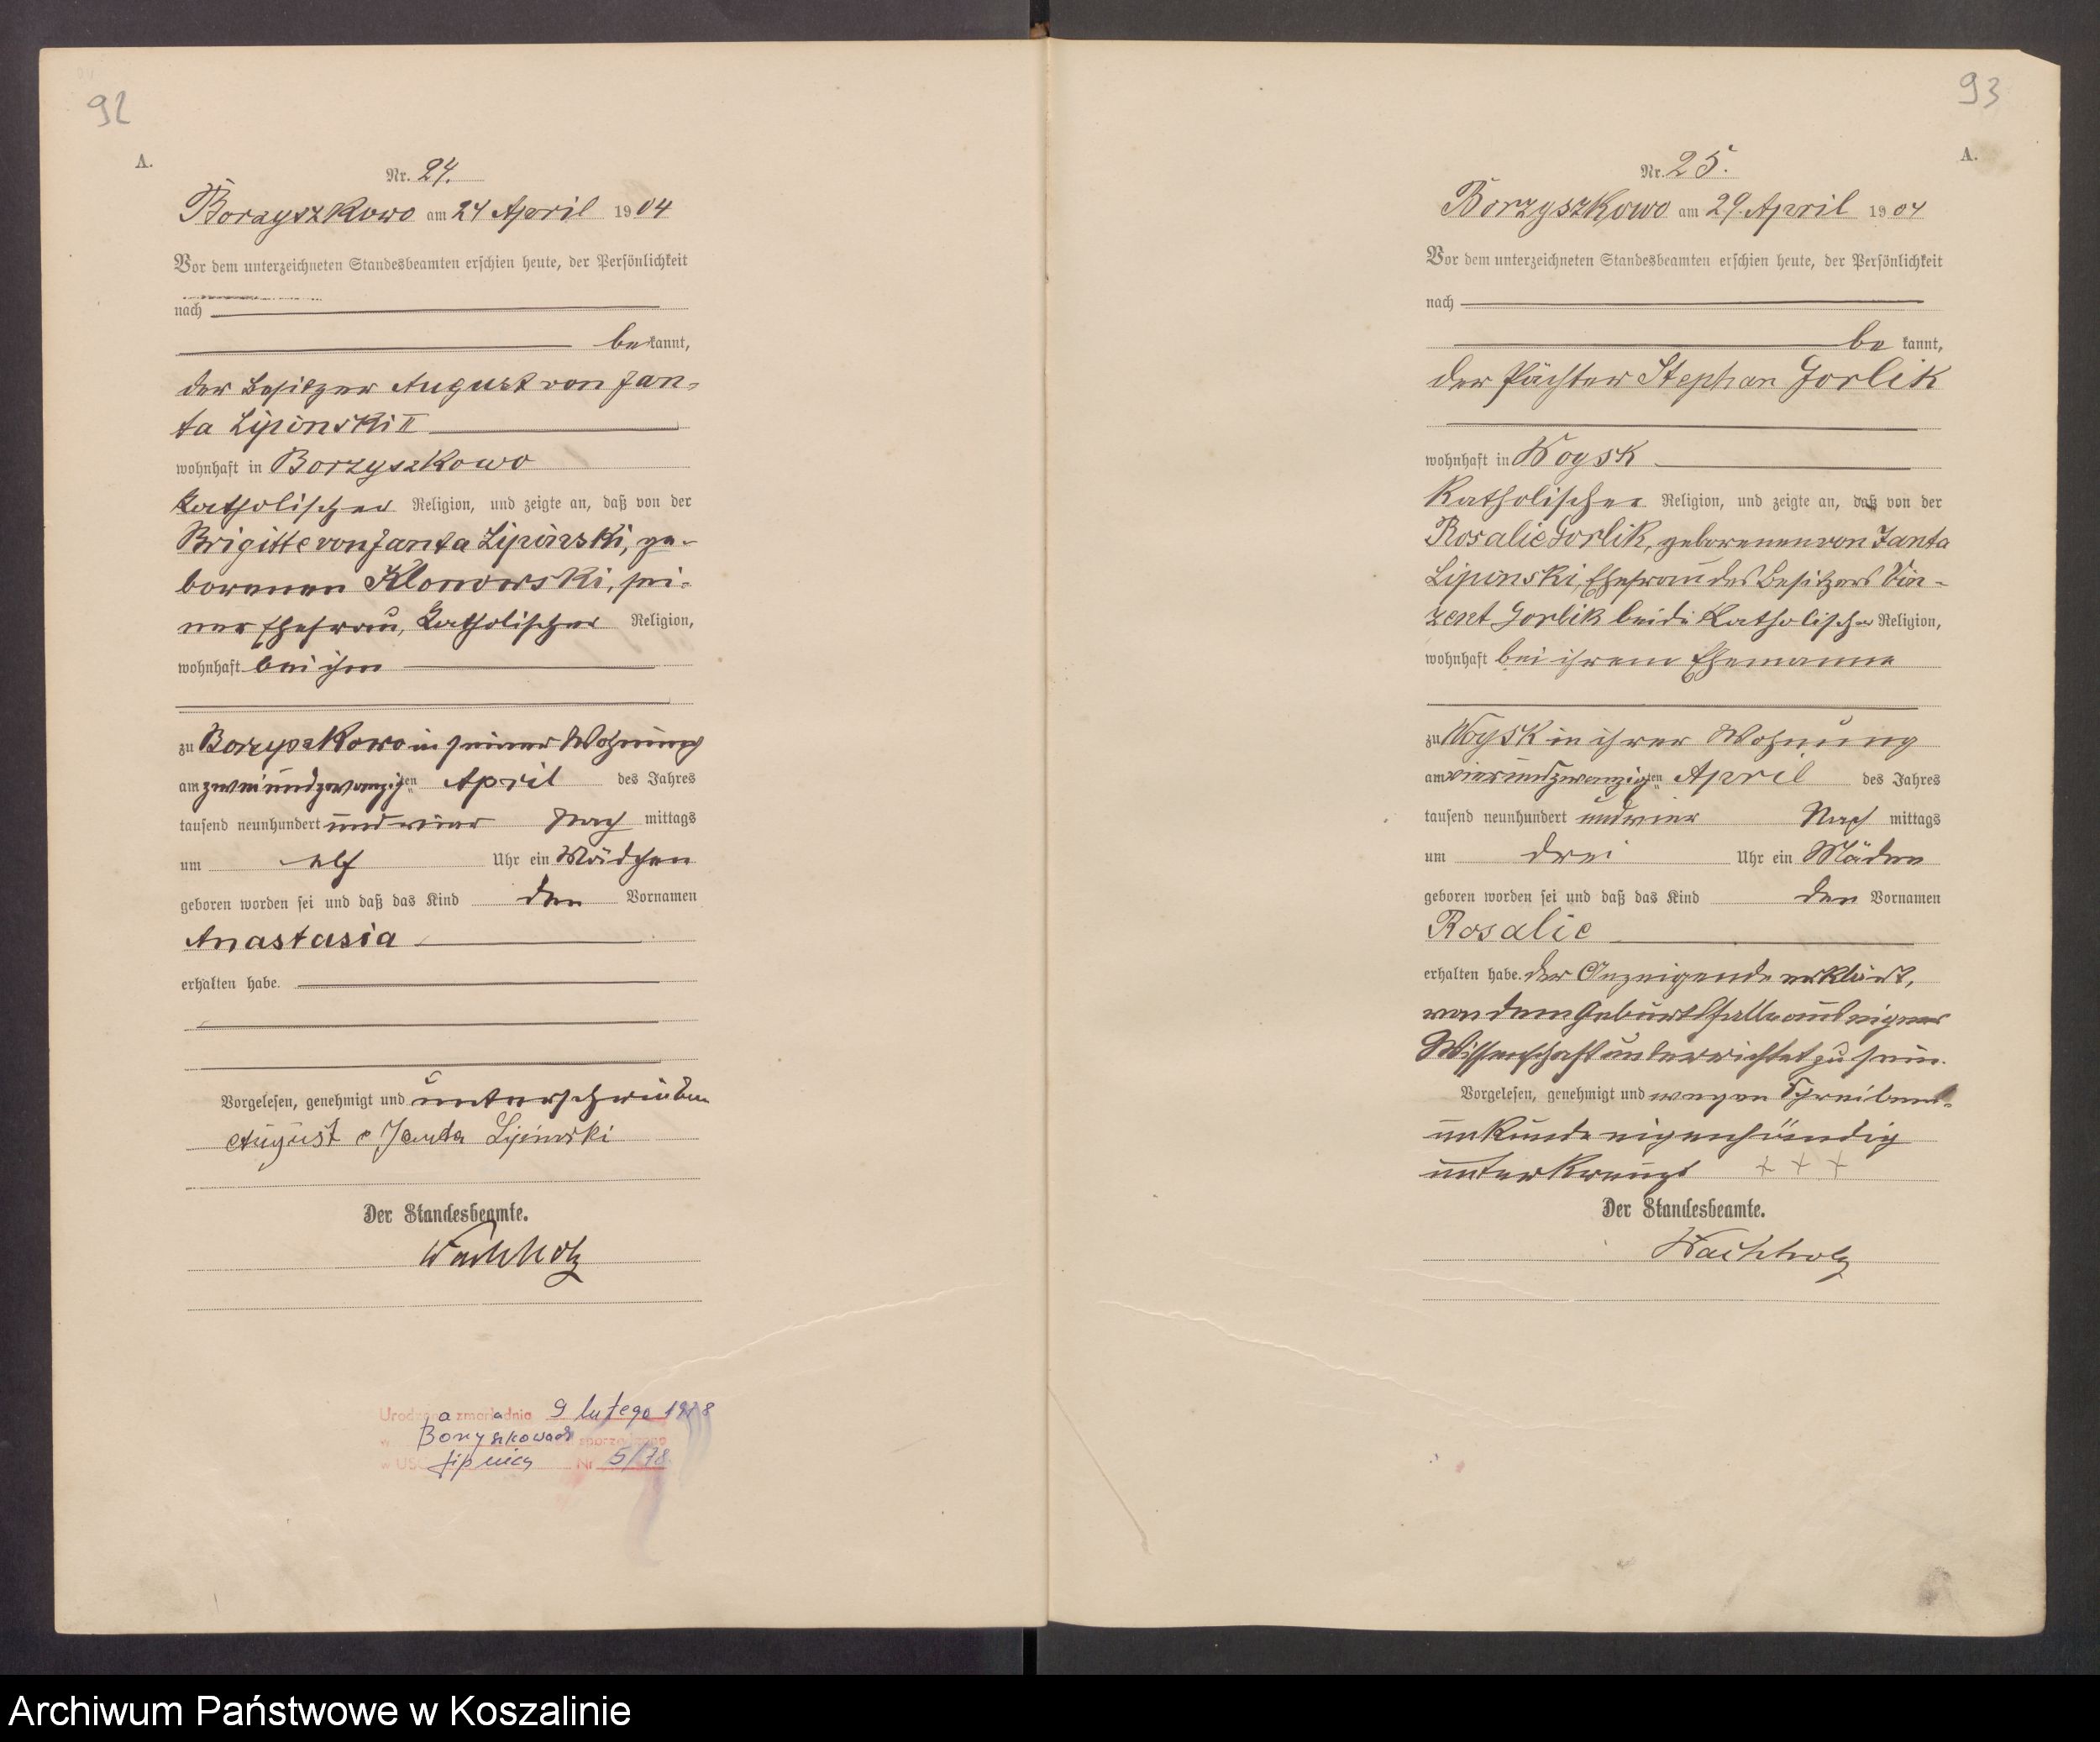 92
A.
Nr. 24.
Borzyszkowo am 24 April 1904
Vor dem unterzeichneten Standesbeamten erschien heute, der Persönlichkeit
nach
bekannt,
der Besitzer August von Jan-
ta Lipinski II
wohnhaft in Borzyszkowo
katholischer Religion, und zeigte an, daß von der
Brigitte von Janta Lipinski, ge-
borenen Klonowski, sei-
ner Ehefrau, katholischer Religion,
wohnhaft bei ihm
zu Borzyszkowo in seiner Wohnung
am zweiundzwanzigten April des Jahres
tausend neunhundert und vier Nach mittags
um elf Uhr ein Mädchen
geboren worden sei und daß das Kind den Vornamen
Anastasia
erhalten habe.
Vorgelesen, genehmigt und unterschrieben
August v Janta Lipinski
Der Standesbeamte.
Wachholz
Urodzona zmarła dnia 9 lutego 1978
w Borzyszkowach sporządzono
w USC Lipnica Nr 5/78
93
A.
Nr. 25.
Borzyszkowo am 29. April 1904
Vor dem unterzeichneten Standesbeamten erschien heute, der Persönlichkeit
nach
bekannt,
der Pächter Stephan Gorlik
wohnhaft in Woysk
katholischer Religion, und zeigte an, daß von der
Rosalie Gorlik, geborenen von Janta
Lipinski, Ehefrau des Besitzers Vin-
zent Gorlik beide katholischer Religion,
wohnhaft bei ihrem Ehemanne
zu Woysk in ihrer Wohnung
am vierundzwanzigten April des Jahres
tausend neunhundert und vier Nach mittags
um drei Uhr ein Mäden
geboren worden sei und daß das Kind den Vornamen
Rosalie
erhalten habe. Der Anzeigende erklärt,
von dem Geburtsfalle aus eigner
Wissenschaft unterrichtet zu sein.
Vorgelesen, genehmigt und wegen Schreibens-
unkunde eigenhändig
unterkreuzt + + +
Der Standesbeamte.
Wachholz
Archiwum Państwowe w Koszalinie